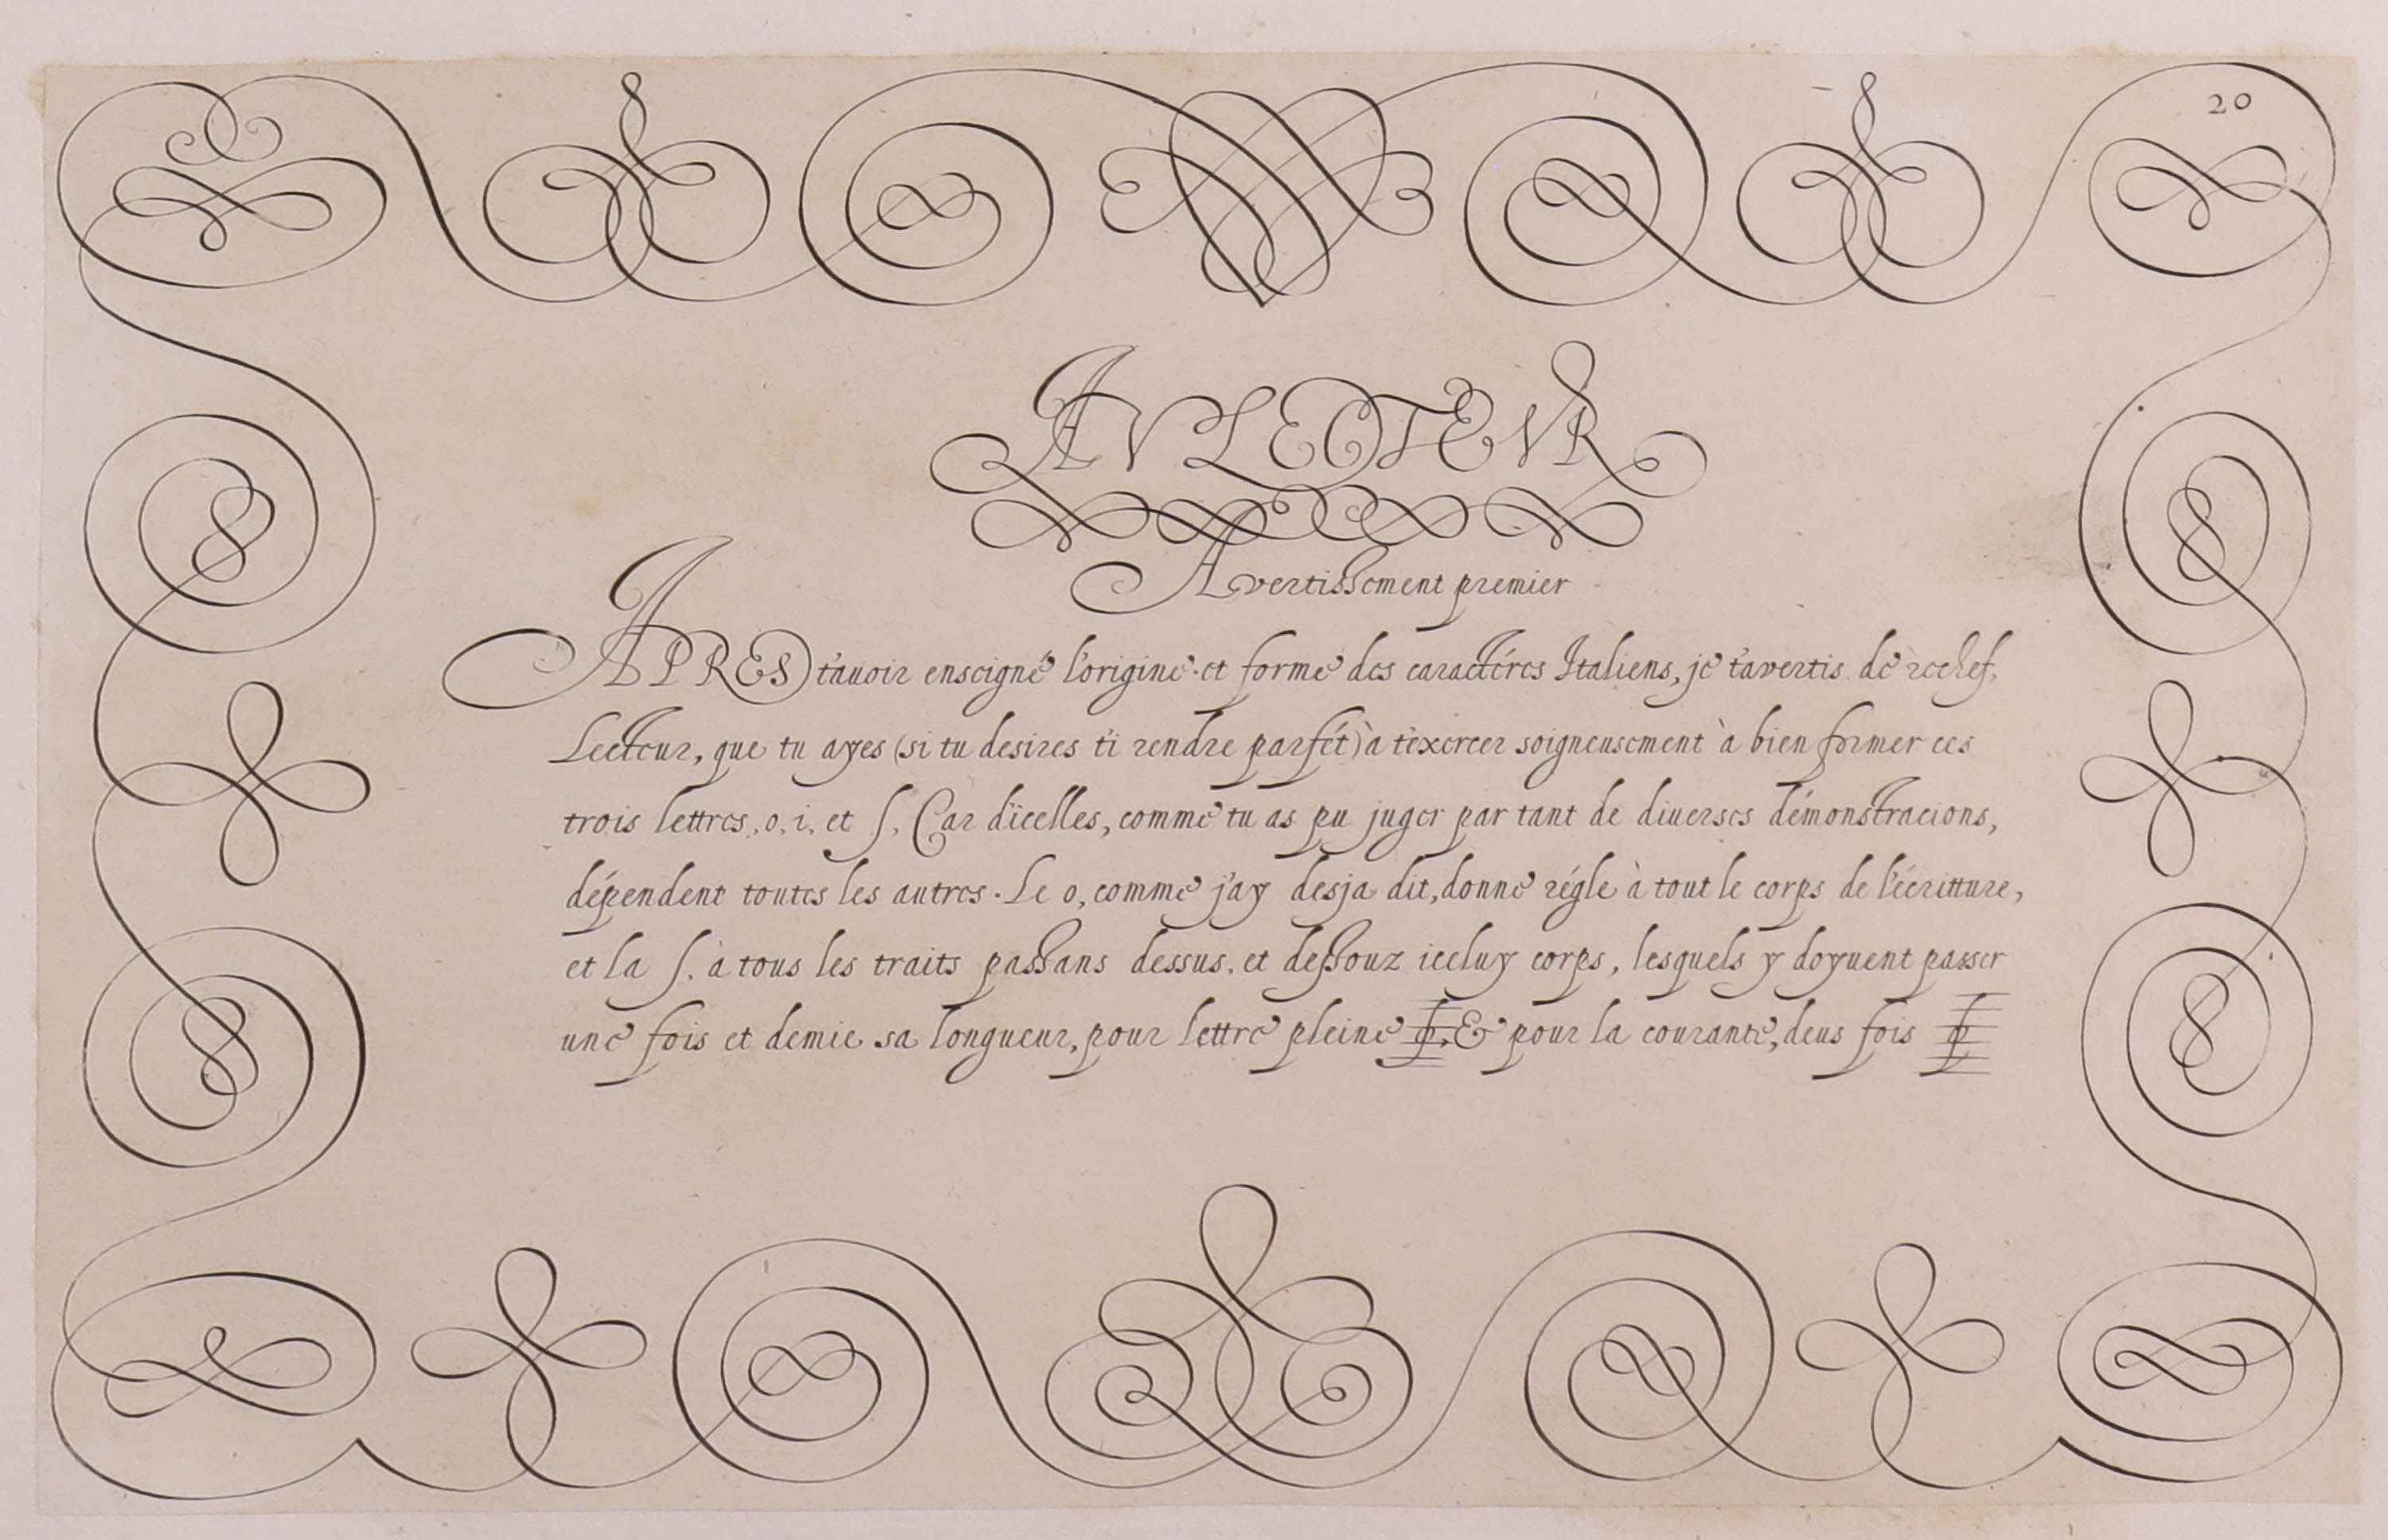 20
AV LECTEVR
Avertissement premier
APRES t'auoir enseigné l'origine et forme des caractéres Italiens, je t'avertis de rechef,
Lecteur, que tu ayes (si tu desires t'i rendre parfét) à t'exercer soigneusement à bien former ces
trois lettres, o, i, et ſ. Car d'icelles, comme tu as pu juger par tant de diuerses démonstracions,
dépendent toutes les autres. Le o, comme j'ay desja dit, donne régle à tout le corps de l'écritture,
et la ſ. à tous les traits paſsans dessus, et deſsouz iceluy corps, lesquels y doyuent passer
une fois et demie sa longueur, pour lettre pleine & pour la courante, deus fois